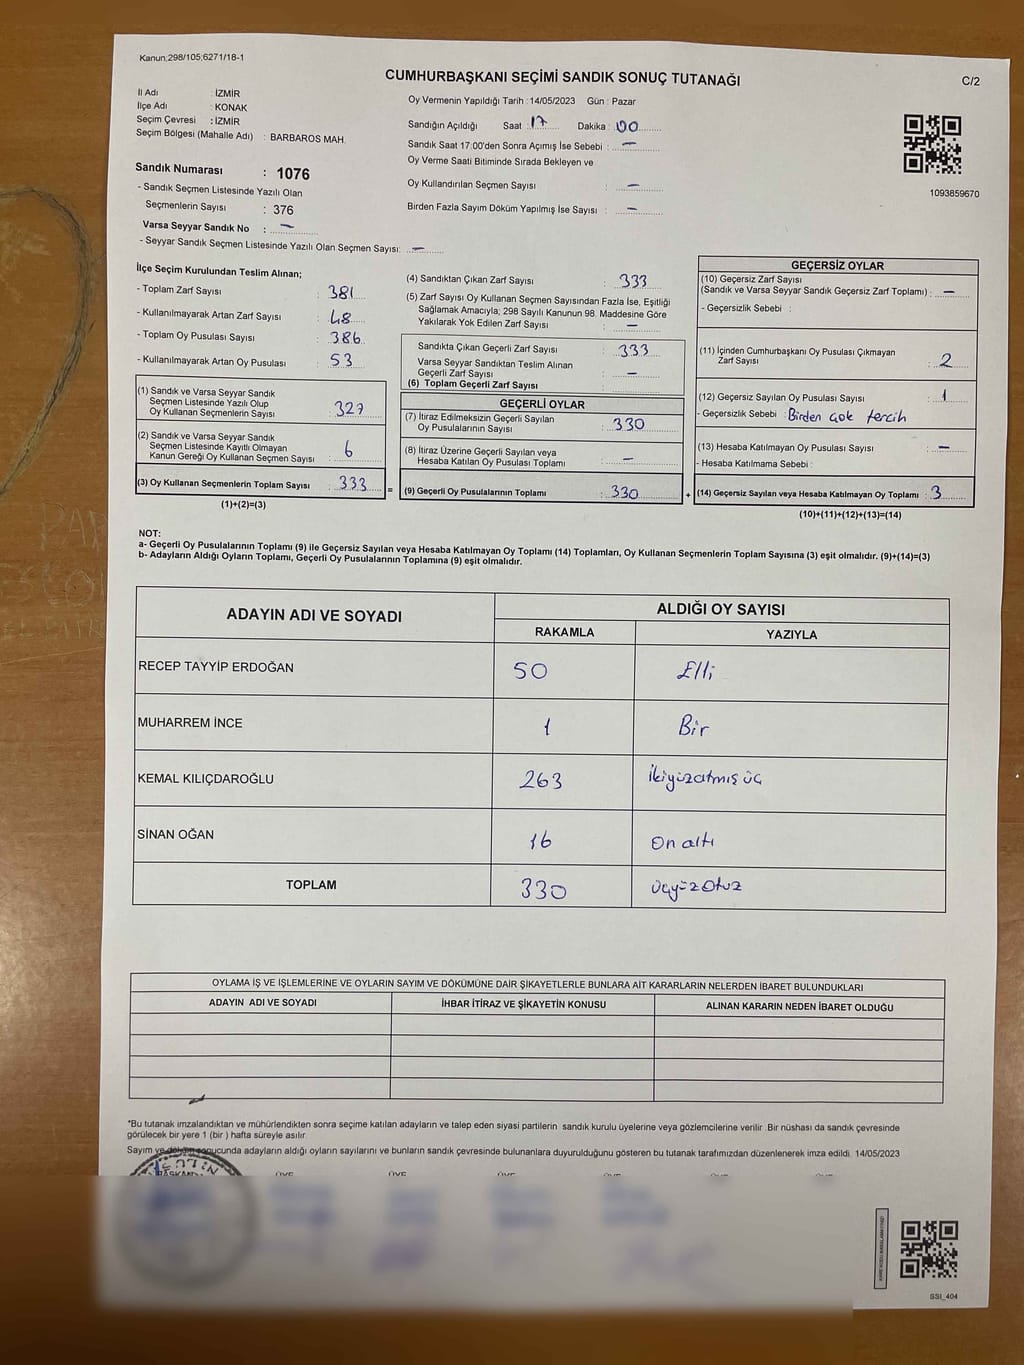 Kanun;298/105;6271/18-1
CUMHURBAŞKANI SEÇİMİ SANDIK SONUÇ TUTANAĞI
C/2
İl Adı : İZMİR
İlçe Adı : KONAK
Seçim Çevresi : İZMİR
Seçim Bölgesi (Mahalle Adı) : BARBAROS MAH.
Oy Vermenin Yapıldığı Tarih : 14/05/2023 Gün : Pazar
Sandığın Açıldığı Saat : 17 Dakika : 00
Sandık Saat 17:00'den Sonra Açımış İse Sebebi : —
Oy Verme Saati Bitiminde Sırada Bekleyen ve
Oy Kullandırılan Seçmen Sayısı : —
Birden Fazla Sayım Döküm Yapılmış İse Sayısı : —
1093859670
Sandık Numarası : 1076
- Sandık Seçmen Listesinde Yazılı Olan
Seçmenlerin Sayısı : 376
Varsa Seyyar Sandık No : —
- Seyyar Sandık Seçmen Listesinde Yazılı Olan Seçmen Sayısı: —
İlçe Seçim Kurulundan Teslim Alınan;
- Toplam Zarf Sayısı : 381
- Kullanılmayarak Artan Zarf Sayısı : 48
- Toplam Oy Pusulası Sayısı : 386
- Kullanılmayarak Artan Oy Pusulası : 53
(1) Sandık ve Varsa Seyyar Sandık
Seçmen Listesinde Yazılı Olup
Oy Kullanan Seçmenlerin Sayısı : 327
(2) Sandık ve Varsa Seyyar Sandık
Seçmen Listesinde Kayıtlı Olmayan
Kanun Gereği Oy Kullanan Seçmen Sayısı : 6
(3) Oy Kullanan Seçmenlerin Toplam Sayısı : 333
(1)+(2)=(3)
(4) Sandıktan Çıkan Zarf Sayısı : 333
(5) Zarf Sayısı Oy Kullanan Seçmen Sayısından Fazla İse, Eşitliği
Sağlamak Amacıyla; 298 Sayılı Kanunun 98. Maddesine Göre
Yakılarak Yok Edilen Zarf Sayısı : —
Sandıkta Çıkan Geçerli Zarf Sayısı : 333
Varsa Seyyar Sandıktan Teslim Alınan
Geçerli Zarf Sayısı : —
(6) Toplam Geçerli Zarf Sayısı :
GEÇERLİ OYLAR
(7) İtiraz Edilmeksizin Geçerli Sayılan
Oy Pusulalarının Sayısı : 330
(8) İtiraz Üzerine Geçerli Sayılan veya
Hesaba Katılan Oy Pusulası Toplamı : —
= (9) Geçerli Oy Pusulalarının Toplamı : 330
GEÇERSİZ OYLAR
(10) Geçersiz Zarf Sayısı
(Sandık ve Varsa Seyyar Sandık Geçersiz Zarf Toplamı) : —
- Geçersizlik Sebebi :
(11) İçinden Cumhurbaşkanı Oy Pusulası Çıkmayan
Zarf Sayısı : 2
(12) Geçersiz Sayılan Oy Pusulası Sayısı : 1
- Geçersizlik Sebebi : Birden çok tercih
(13) Hesaba Katılmayan Oy Pusulası Sayısı : —
- Hesaba Katılmama Sebebi :
+ (14) Geçersiz Sayılan veya Hesaba Katılmayan Oy Toplamı : 3
(10)+(11)+(12)+(13)=(14)
NOT:
a- Geçerli Oy Pusulalarının Toplamı (9) ile Geçersiz Sayılan veya Hesaba Katılmayan Oy Toplamı (14) Toplamları, Oy Kullanan Seçmenlerin Toplam Sayısına (3) eşit olmalıdır. (9)+(14)=(3)
b- Adayların Aldığı Oyların Toplamı, Geçerli Oy Pusulalarının Toplamına (9) eşit olmalıdır.
ADAYIN ADI VE SOYADI
ALDIĞI OY SAYISI
RAKAMLA YAZIYLA
RECEP TAYYİP ERDOĞAN 50 Elli
MUHARREM İNCE 1 Bir
KEMAL KILIÇDAROĞLU 263 İkiyüzatmış üç
SİNAN OĞAN 16 On altı
TOPLAM 330 Üçyüzotuz
OYLAMA İŞ VE İŞLEMLERİNE VE OYLARIN SAYIM VE DÖKÜMÜNE DAİR ŞİKAYETLERLE BUNLARA AİT KARARLARIN NELERDEN İBARET BULUNDUKLARI
ADAYIN ADI VE SOYADI İHBAR İTİRAZ VE ŞİKAYETİN KONUSU ALINAN KARARIN NEDEN İBARET OLDUĞU
*Bu tutanak imzalandıktan ve mühürlendikten sonra seçime katılan adayların ve talep eden siyasi partilerin sandık kurulu üyelerine veya gözlemcilerine verilir. Bir nüshası da sandık çevresinde
görülecek bir yere 1 (bir ) hafta süreyle asılır.
Sayım ve döküm sonucunda adayların aldığı oyların sayılarını ve bunların sandık çevresinde bulunanlara duyurulduğunu gösteren bu tutanak tarafımızdan düzenlenerek imza edildi. 14/05/2023
SSI_404